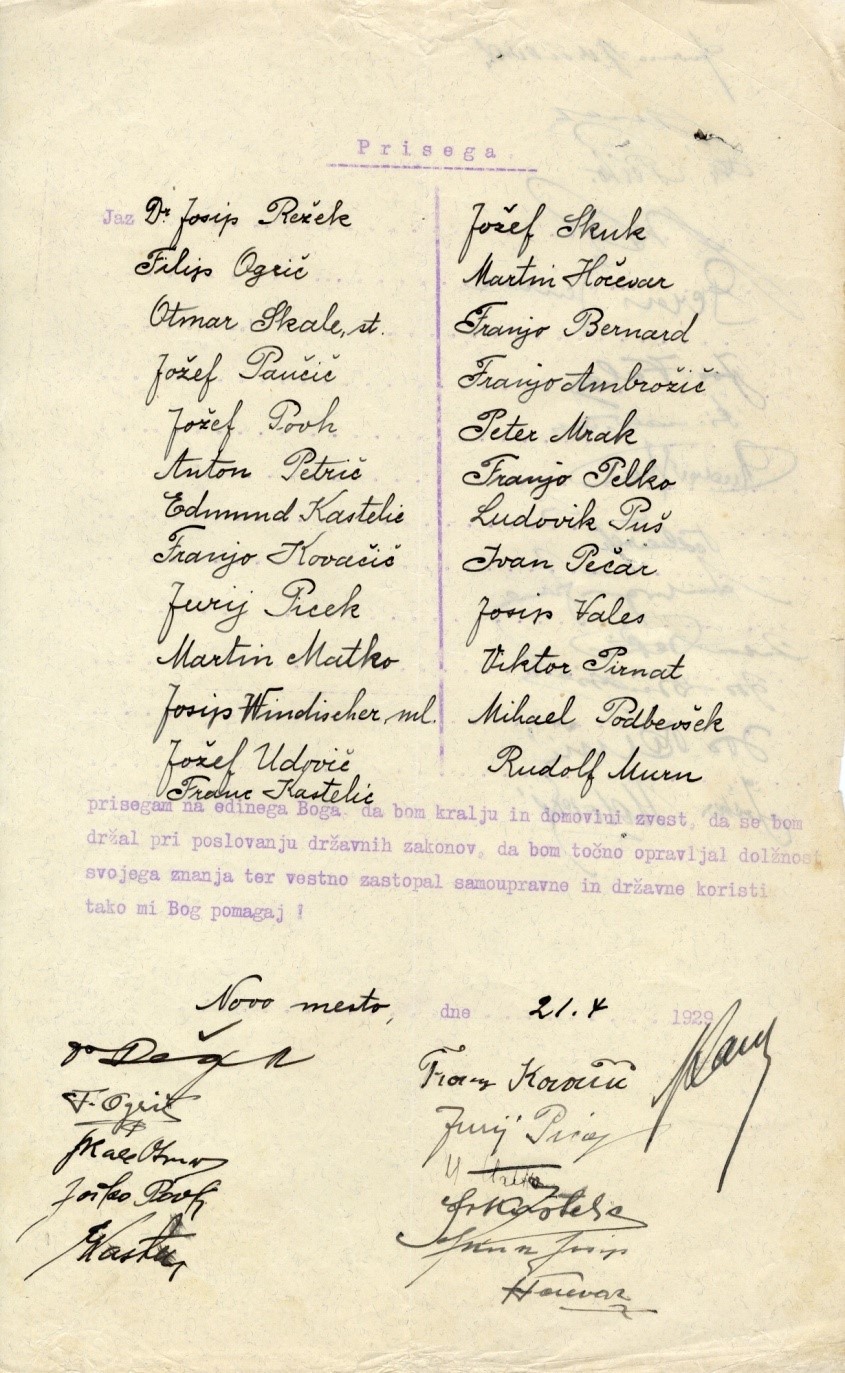 Prisega
Jaz Dr Josip Režek
Filip Ogrič
Otmar Skale, st.
Jožef Paučič
Jožef Povh
Anton Petrič
Edmund Kastelic
Franjo Kovačič
Jurij Picek
Martin Matko
Josip Windischer, ml.
Jožef Udovič
Franc Kastelic
Jožef Skuk
Martin Hočevar
Franjo Bernard
Franjo Ambrožič
Peter Mrak
Franjo Pelko
Ludovik Puš
Ivan Pečar
Josip Vales
Viktor Pirnat
Mihael Podbevšek
Rudolf Murn
prisegam na edinega Boga, da bom kralju in domovini zvest, da se bom
držal pri poslovanju državnih zakonov, da bom točno opravljal dolžnost
svojega znanja ter vestno zastopal samoupravne in državne koristi
tako mi Bog pomagaj !
Novo mesto, dne 21.4 1929
F. Ogrič
Skale Otmar
Joško Povh
Jurij Picek
Fr Kastelic
Skuk Josip
Hočevar